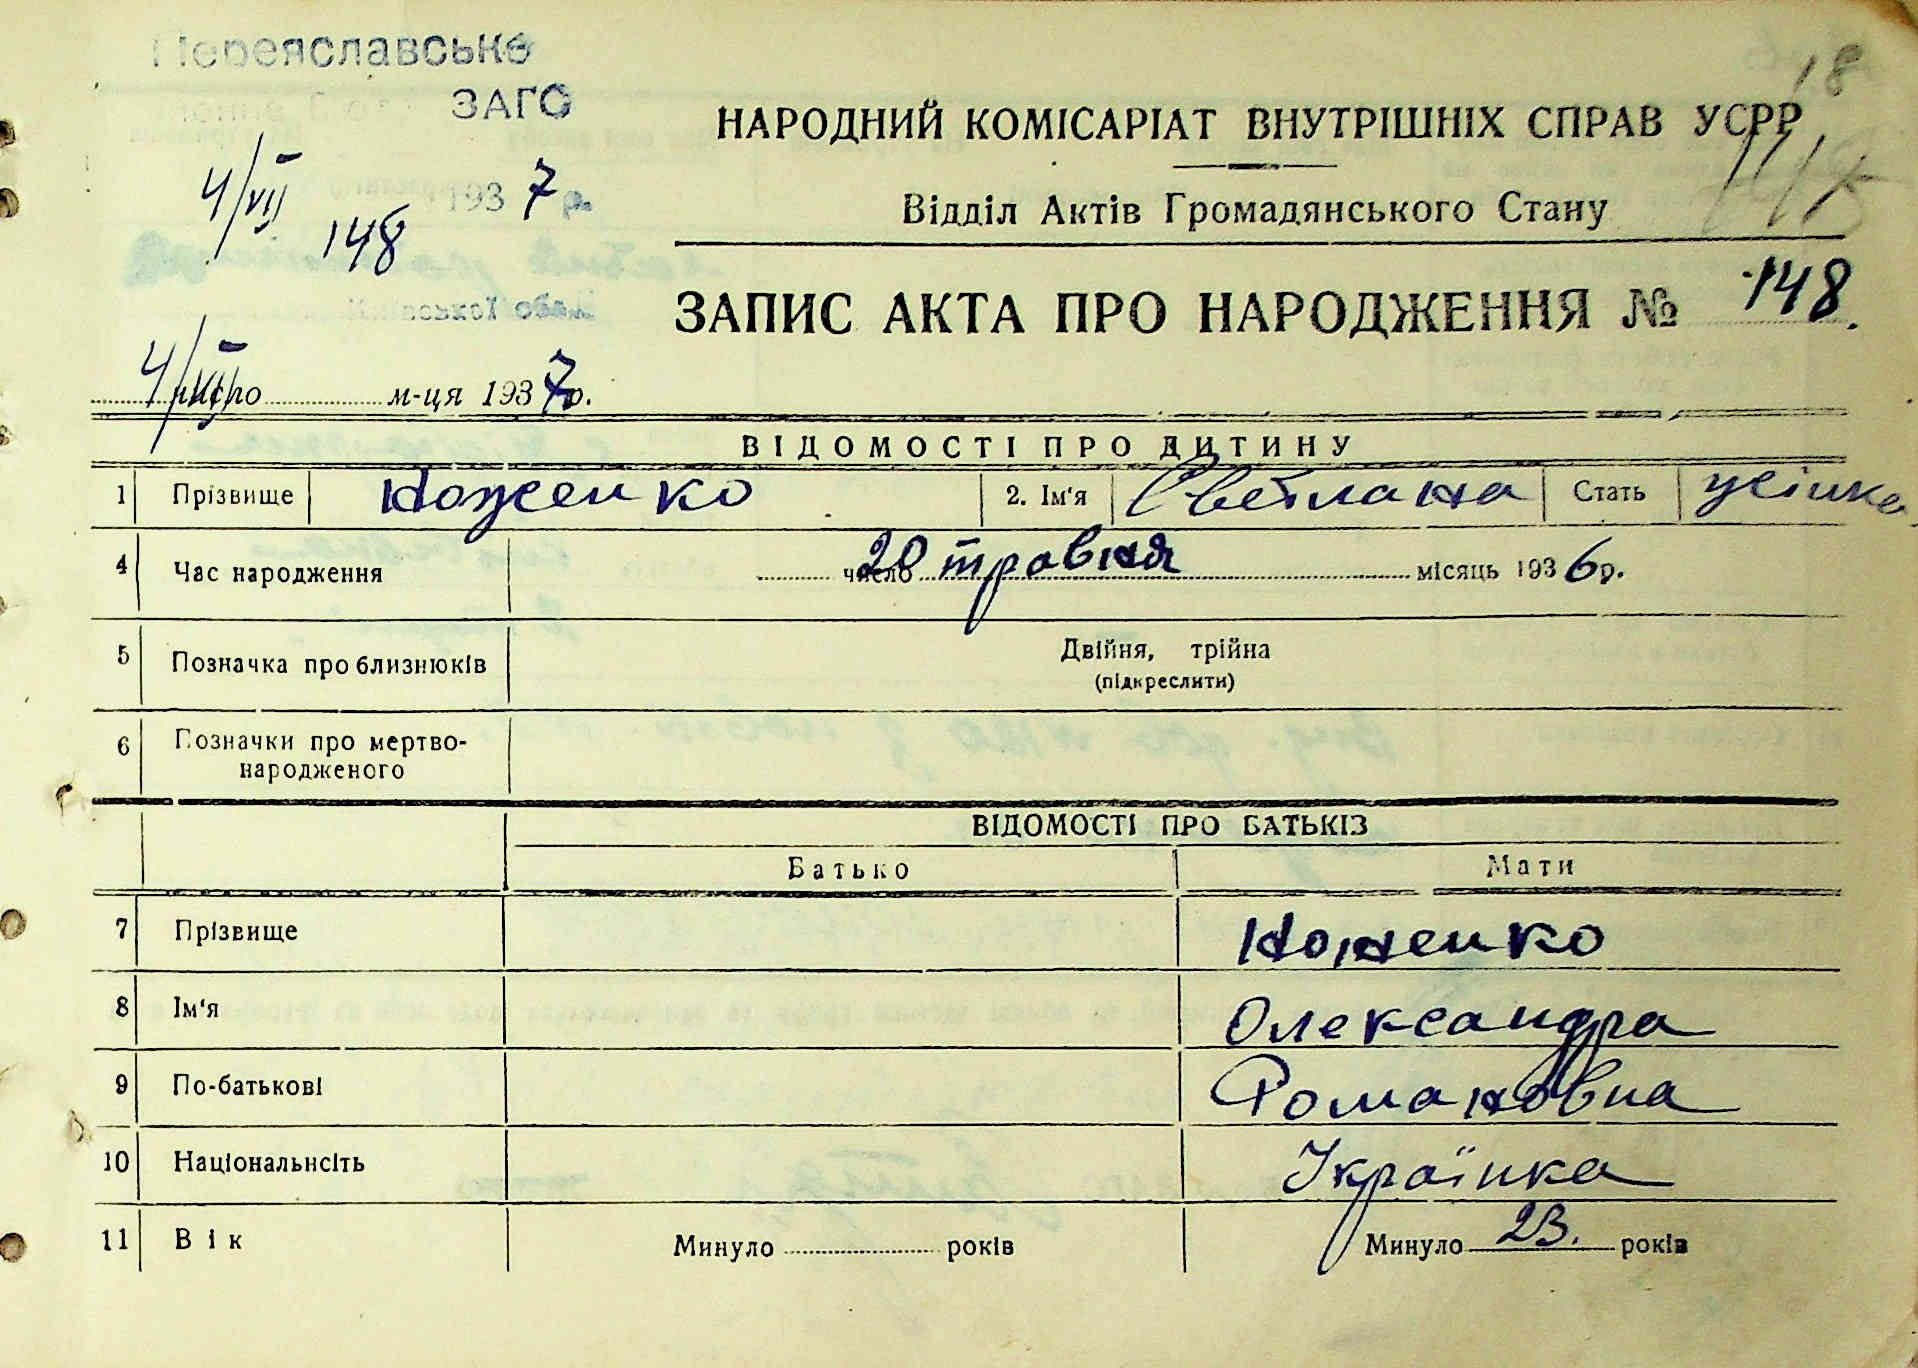 Переяславське
ЗАГС
4/VII 1937 р.
148
Київської обл.
18
НАРОДНИЙ КОМІСАРІАТ ВНУТРІШНІХ СПРАВ УСРР
Відділ Актів Громадянського Стану
ЗАПИС АКТА ПРО НАРОДЖЕННЯ № 148.
4/VII число м-ця 1937 р.
ВІДОМОСТІ ПРО ДИТИНУ
1 Прізвище Ноженко 2. Ім'я Светлана Стать жінка
4 Час народження 20 число травня місяць 1936 р.
5 Позначка про близнюків Двійня, трійна
(підкреслити)
6 Позначки про мертво-
народженого
ВІДОМОСТІ ПРО БАТЬКІВ
Батько Мати
7 Прізвище Ноженко
8 Ім'я Олександра
9 По-батькові Романовна
10 Національність Українка
11 Вік Минуло років Минуло 23. років